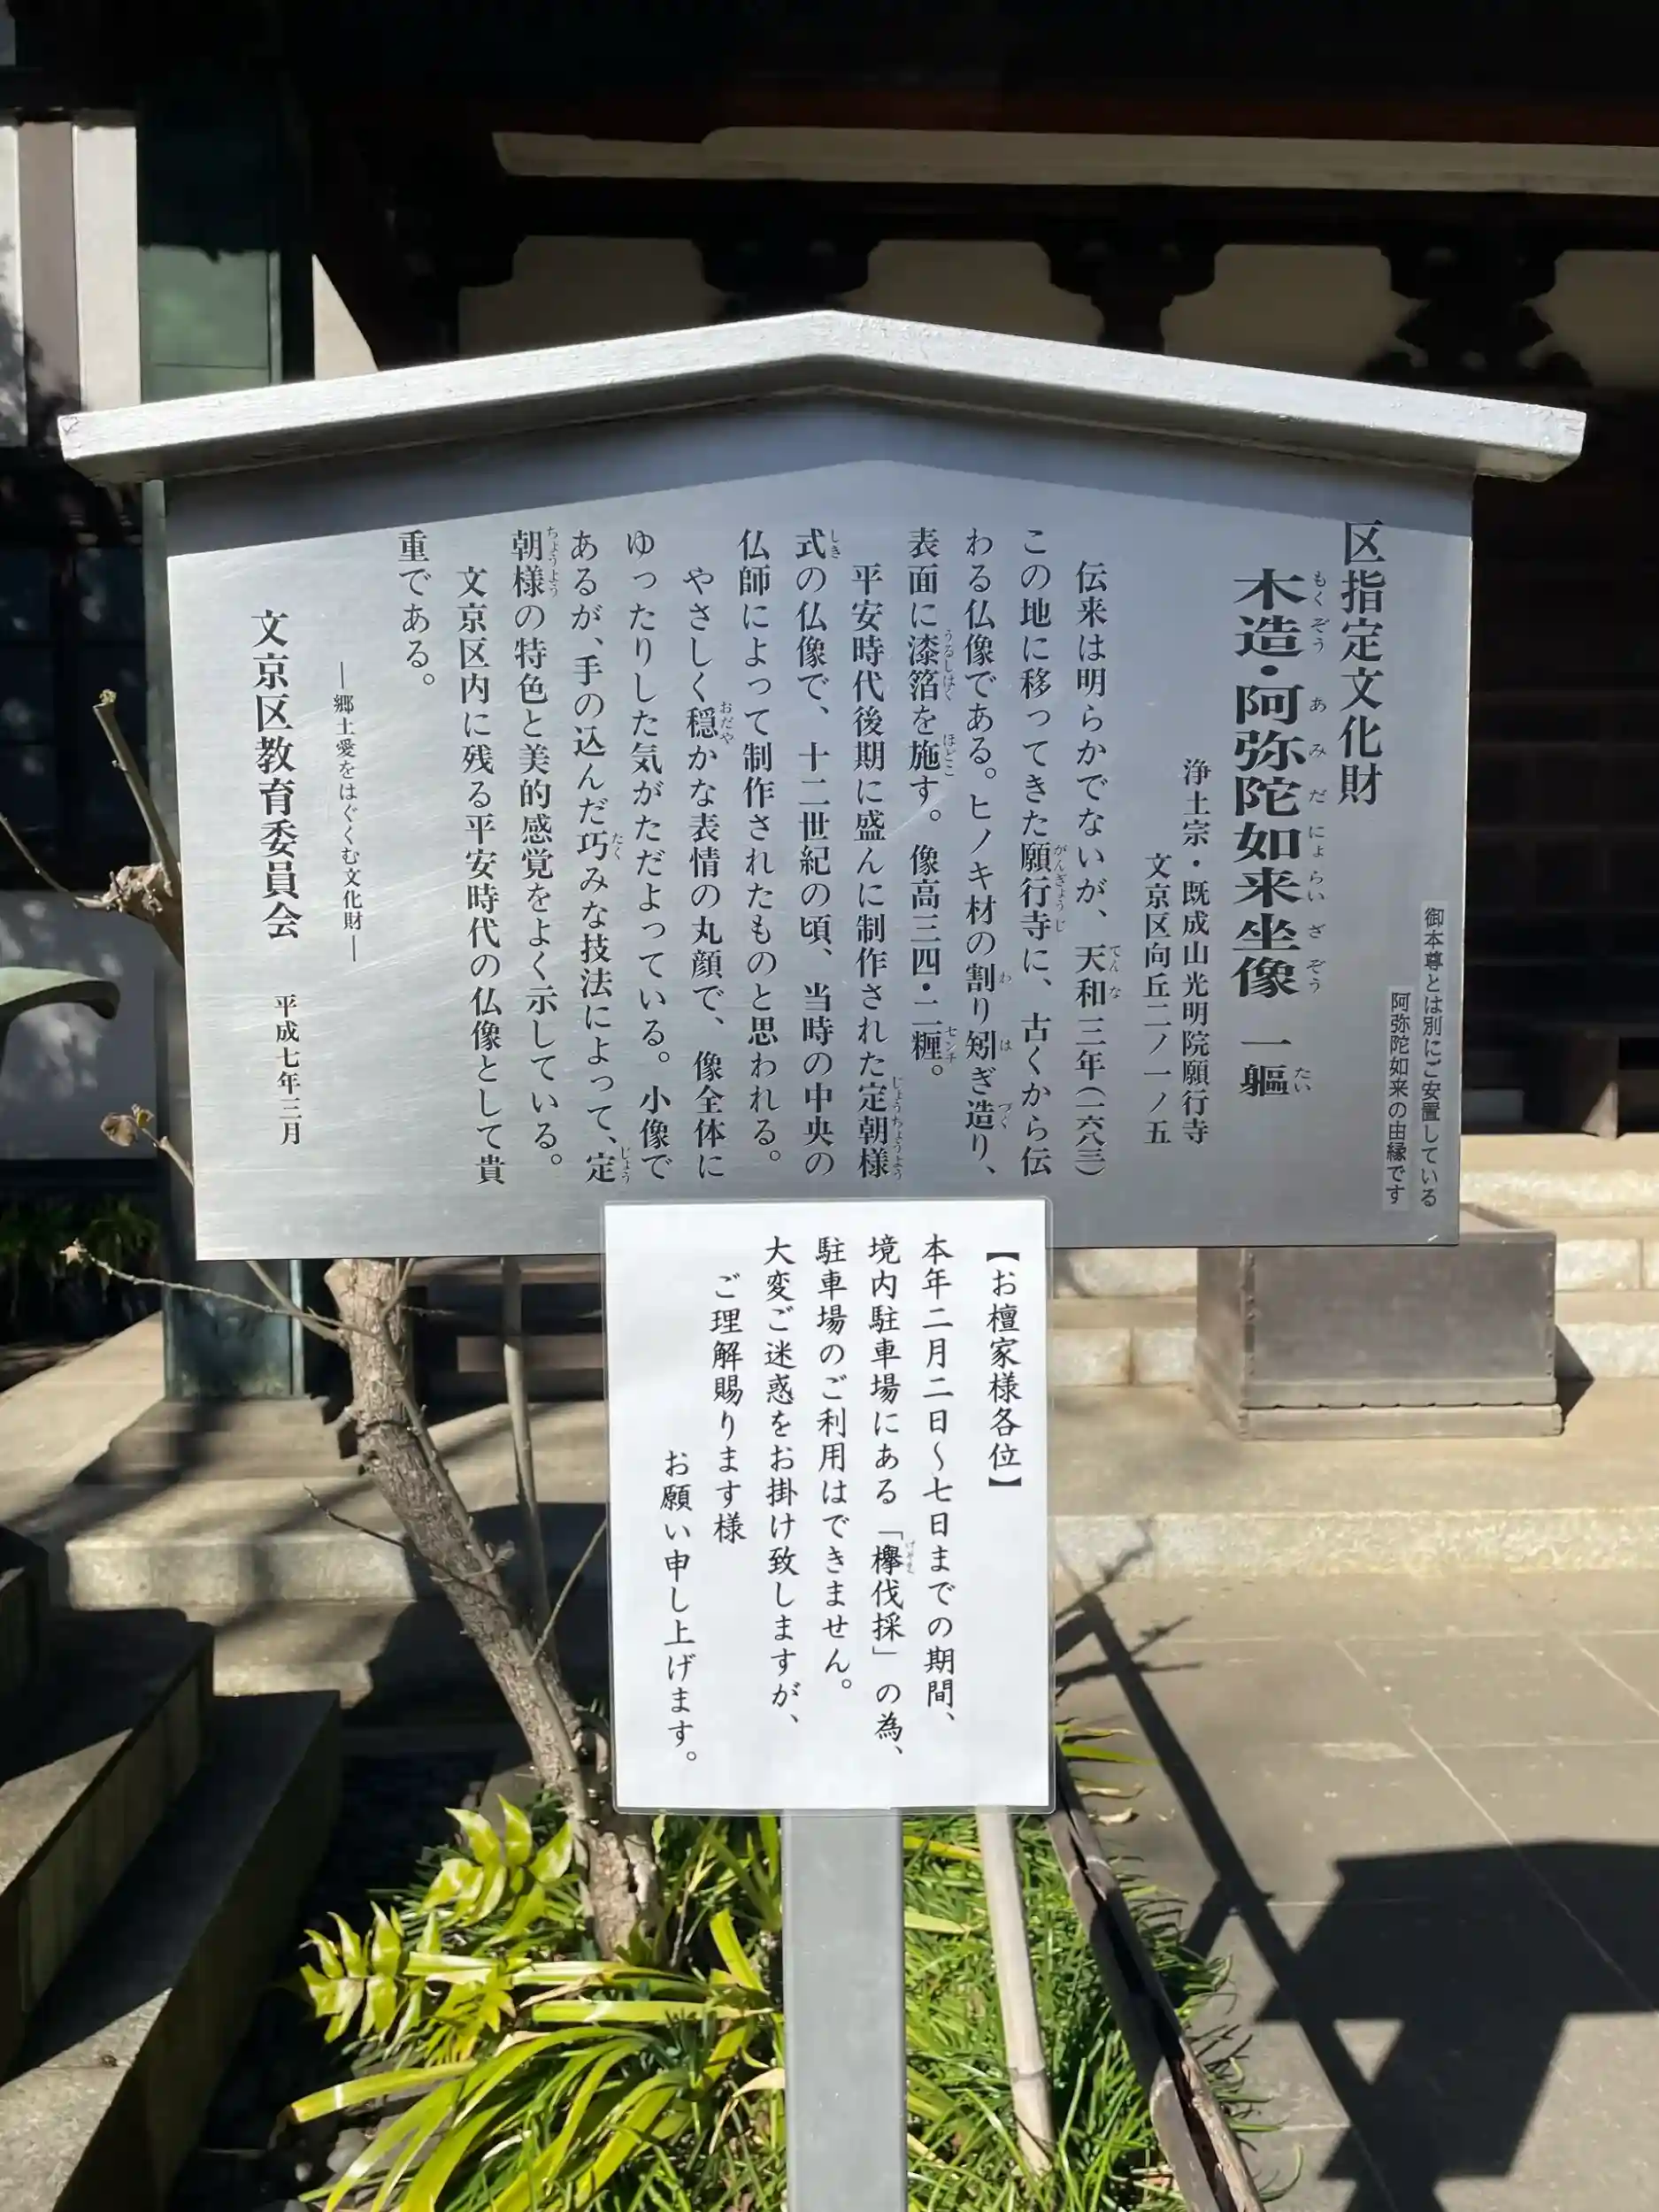 御本尊とは別にご安置している
阿弥陀如来の由縁です
区指定文化財
木造・阿弥陀如来坐像 一軀
もくぞう あみだにょらいざぞう たい
浄土宗・既成山光明院願行寺
文京区向丘二ノ一ノ五
伝来は明らかでないが、天和三年(一六八三)
てんな
この地に移ってきた願行寺に、古くから伝
がんぎょうじ
わる仏像である。ヒノキ材の割り矧ぎ造り、
わ は づく
表面に漆箔を施す。像高三四・二糎。
うるしはく ほどこ センチ
平安時代後期に盛んに制作された定朝様
じょうちょうよう
式の仏像で、十二世紀の頃、当時の中央の
しき
仏師によって制作されたものと思われる。
やさしく穏かな表情の丸顔で、像全体に
おだや
ゆったりした気がただよっている。小像で
あるが、手の込んだ巧みな技法によって、定
たく じょう
朝様の特色と美的感覚をよく示している。
ちょうよう
文京区内に残る平安時代の仏像として貴
重である。
―郷土愛をはぐくむ文化財―
文京区教育委員会 平成七年三月
【お檀家様各位】
本年二月二日〜七日までの期間、
境内駐車場にある「欅伐採」の為、
けやき
駐車場のご利用はできません。
大変ご迷惑をお掛け致しますが、
ご理解賜ります様
お願い申し上げます。